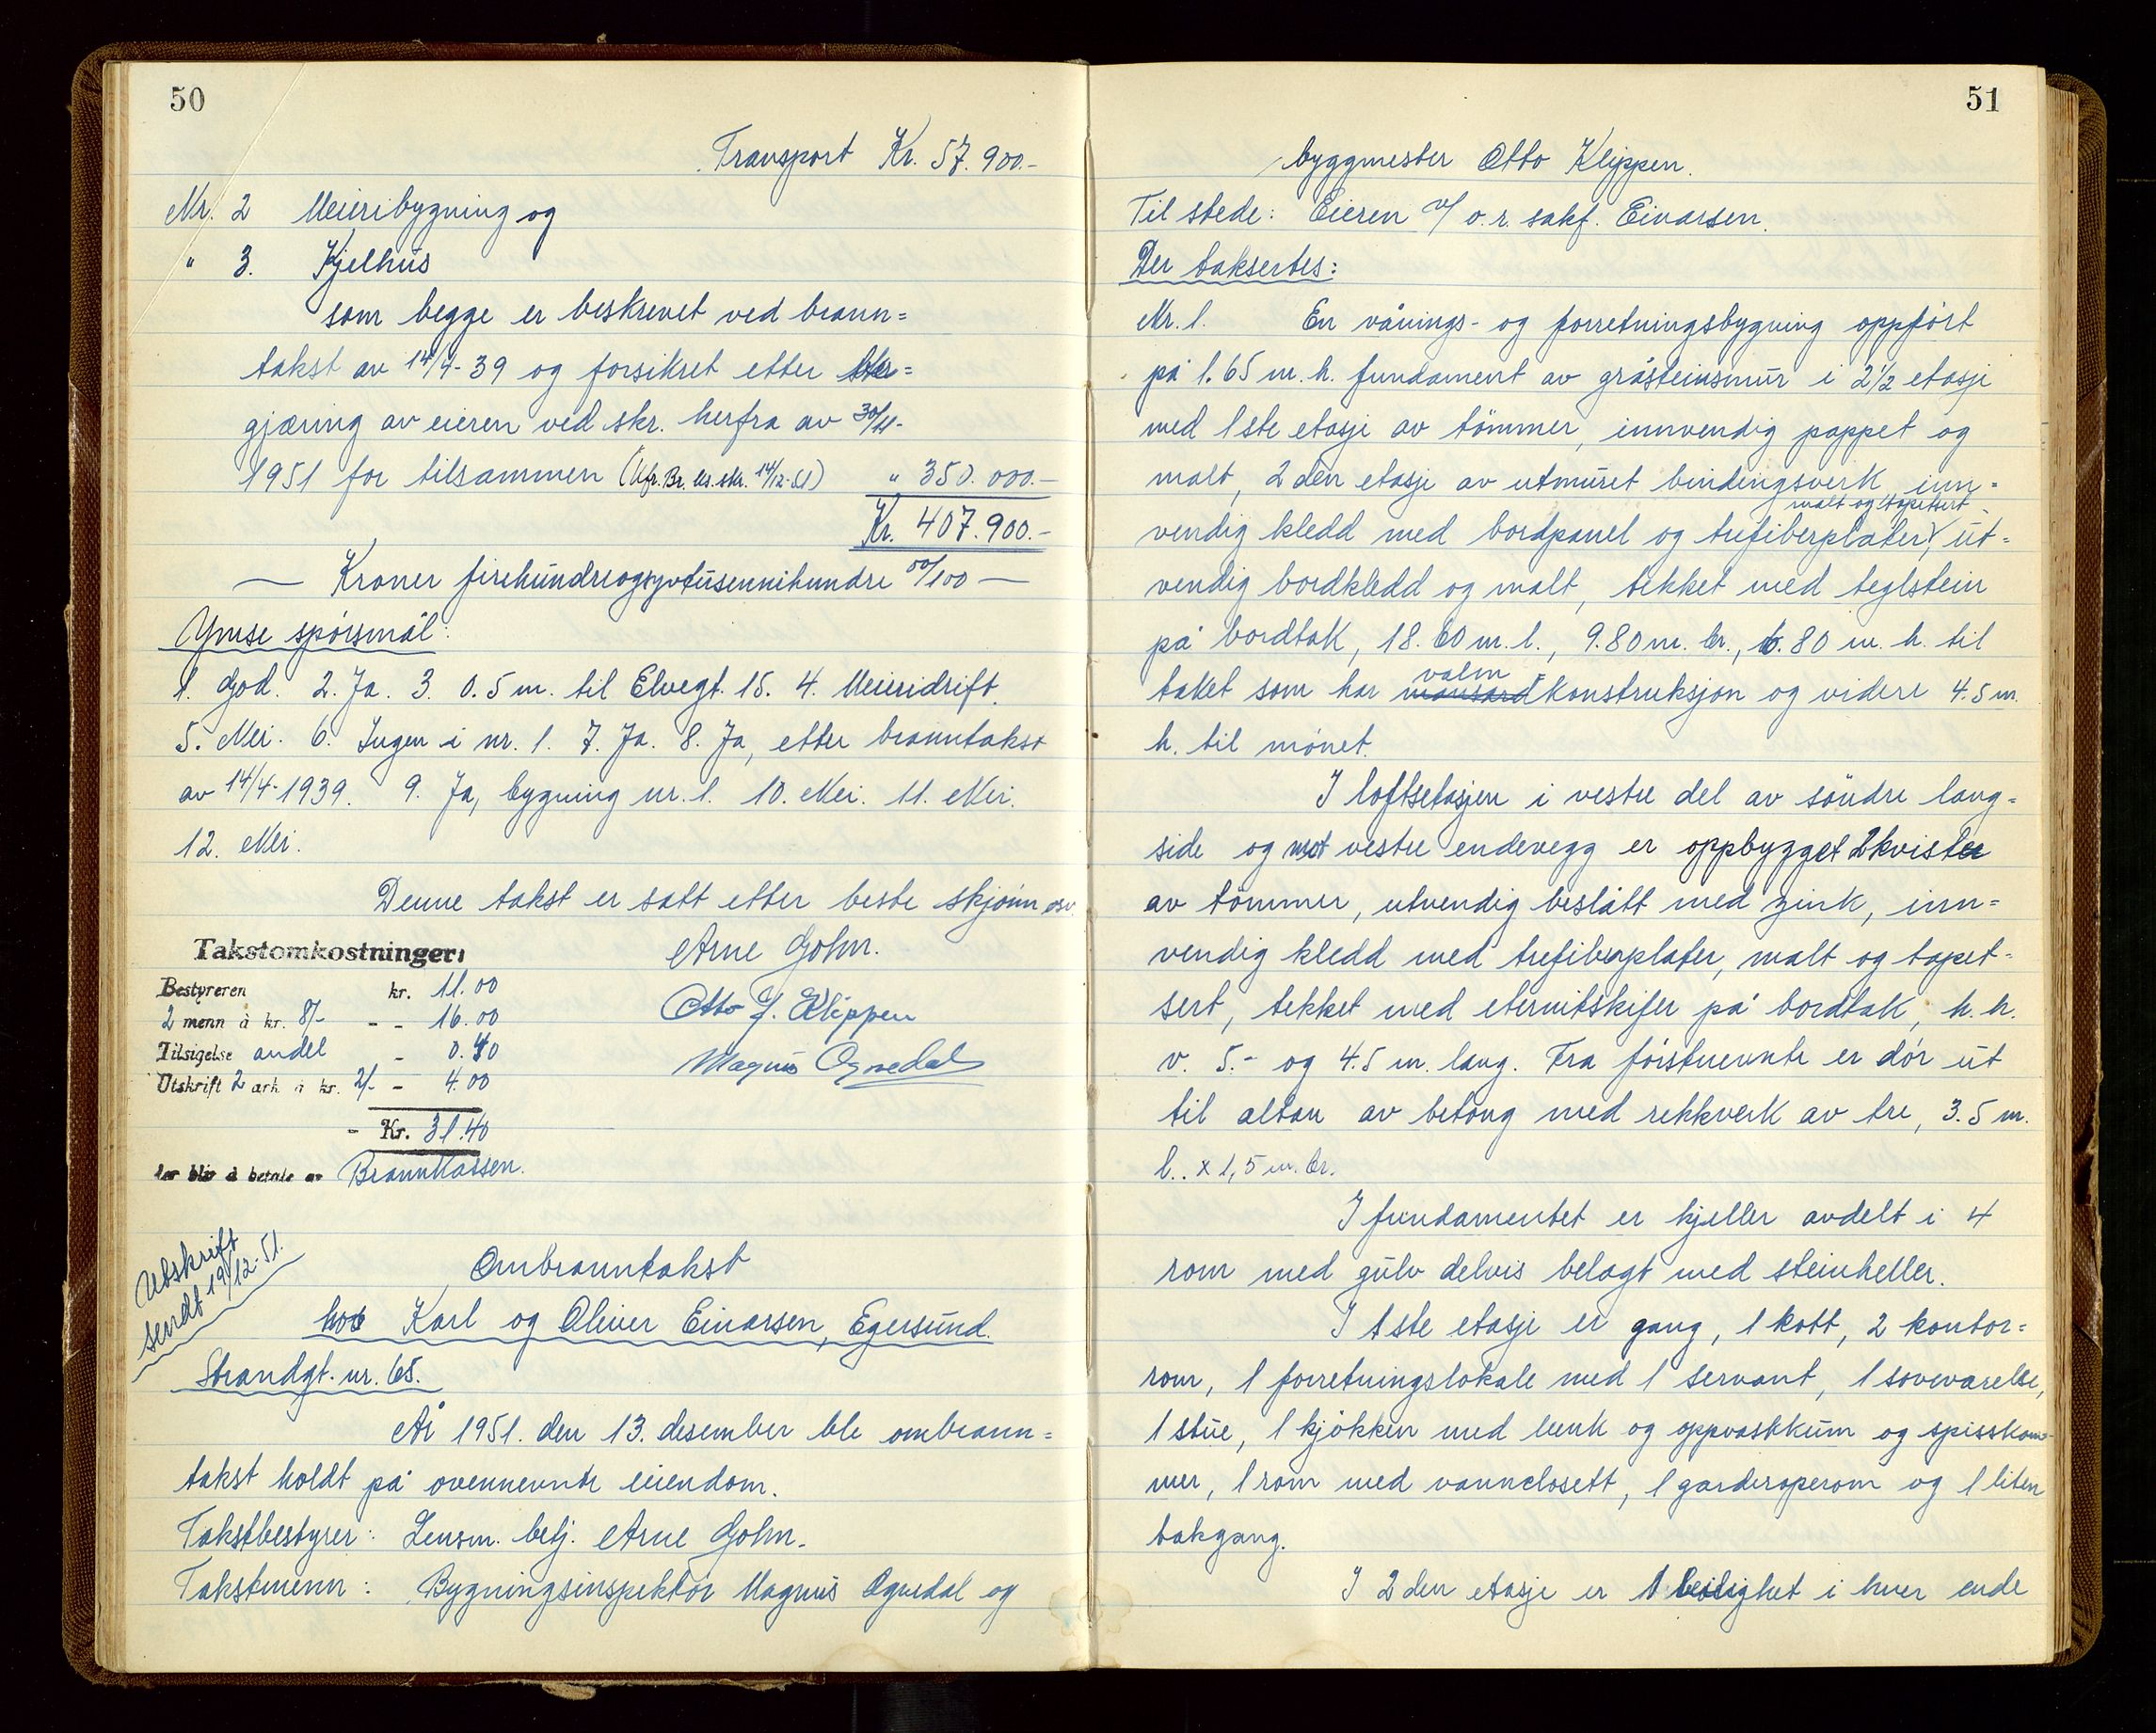 50
Transport Kr. 57.900.-
Nr. 2 Meieribygning og
" 3. Kjelhus
som begge er beskrevet ved brann=
takst av 14/4-39 og forsikret etter
gjæring av eieren ved skr. herfra av 30/11-
1951 for tilsammen (Jfr. Br. ks. skr. 14/12-51) " 350.000.-
Kr. 407.900.-
— Kroner firehundreogsyvtusennihundre 00/100 —
Ymse spørsmål:
1. God. 2. Ja. 3. 0.5 m. til Elvegt. 15. 4. Meieridrift.
5. Nei. 6. Ingen i nr. 1. 7. Ja. 8. Ja, etter branntakst
av 14/4-1939. 9. Ja, bygning nr. 1. 10. Nei. 11. Nei.
12. Nei.
Denne takst er satt etter beste skjønn osv.
Takstomkostninger:
Arne Gohn.
Bestyreren kr. 11.00
Otto J. Klippen
2 menn à kr. 8/- - - 16.00
Tilsigelse andel - 0.40
Magnus Ognedal
Utskrift 2 ark à kr. 2/- - 4.00
- Kr. 31.40
som blir å betale av Brannkassen.
Utskrift
sendt 19/12-51.
Ombranntakst
hos Karl og Oliver Einarsen, Egersund.
Strandgt. nr. 65.
År 1951. den 13. desember ble ombrann=
takst holdt på ovennevnte eiendom.
Takstbestyrer: Lensm. betj. Arne Gohn.
Takstmenn: Bygningsinspektør Magnus Ognedal og
51
byggmester Otto Klippen.
Til stede: Eieren v/ o.r. sakf. Einarsen.
Der taksertes:
Nr. 1. En vånings- og forretningsbygning oppført
på 1.65 m. h. fundament av gråsteinsmur i 2 1/2 etasje
med 1ste etasje av tømmer, innvendig pappet og
malt, 2den etasje av utmuret bindingsverk inn=
malt og tapetsert
vendig kledd med bordpanel og trefiberplater, ut=
vendig bordkledd og malt, tekket med teglstein
på bordtak, 18.60 m. l., 9.80 m. br., 6.80 m. h. til
valm
taket som har mansard konstruksjon og videre 4.5 m.
h. til mønet.
I loftsetasjen i vestre del av søndre lang=
side og mot vestre endevegg er oppbygget 2 kvister
av tømmer, utvendig beslått med zink, inn=
vendig kledd med trefiberplater, malt og tapet=
sert, tekket med eternitskifer på bordtak, h. h.
v. 5.- og 4.5 m. lang. Fra førstnevnte er dør ut
til altan av betong med rekkverk av tre, 3.5 m.
l. x 1,5 m. br.
I fundamentet er kjeller avdelt i 4
rom med gulv delvis belagt med steinheller.
I 1ste etasje er gang, 1 kott, 2 kontor=
rom, 1 forretningslokale med 1 servant, 1 soveværelse,
1 stue, 1 kjøkken med benk og oppvaskkum og spisskam=
mer, 1 rom med vannclosett, 1 garderoperom og 1 liten
bakgang.
I 2den etasje er 1 leilighet i hver ende